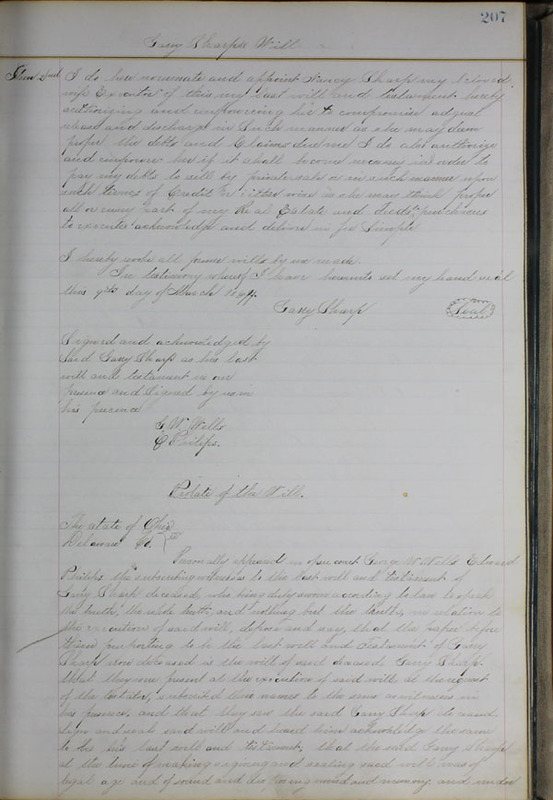 207
Garry Sharps Will
Item 2nd I do here nominate and appoint Nancy Sharp my beloved
wife Executor of this my last will and testament hereby
authorising and empowering her to compromise adjust
release and discharge in such manner as she may deem
proper the debts and claims due me I do also authorize
and empower her if it shall become necessary in order to
pay my debts to sell by private sale or in such manner upon
such terms of Credit or otherwise as she may think proper
all or any part of my Real Estate and deeds to purchasers
to execute acknowledge and deliver in fee Simple
I hereby revoke all former wills by me made.
In testimony whereof I have hereunto set my hand & seal
this 9th day of March
Garry Sharp Seal
Signed and acknowledged by
Said Garry Sharp as his last
will and testament in our
presence and Signed by us in
his presence
G W Wells
E Philips.
Probate of the Will.
The State of Ohio
Delaware Co. SS
Personally appeared in open court George W Wells Edward
Philips the subscribing witnesses to the last will and testament of
Garry Sharp deceased, who being duly sworn according to law to speak
the truth, the whole truth, and nothing but the truth, in relation to
the execution of said will, depose and say, that the paper before
them purporting to be the last will and testament of Garry
Sharp now deceased is the will of said deceased Garry Sharp.
that they were present at the execution of said will at the request
of the testator, subscribed their names to the same as witnesses in
his presence, and that they saw the said Garry Sharp
sign and seal said will and heard him acknowledge the same
to be his last will and testament, that the said Garry Sharp
at the time of making signing and sealing said will was of
legal age and of sound and disposing mind and memory and under